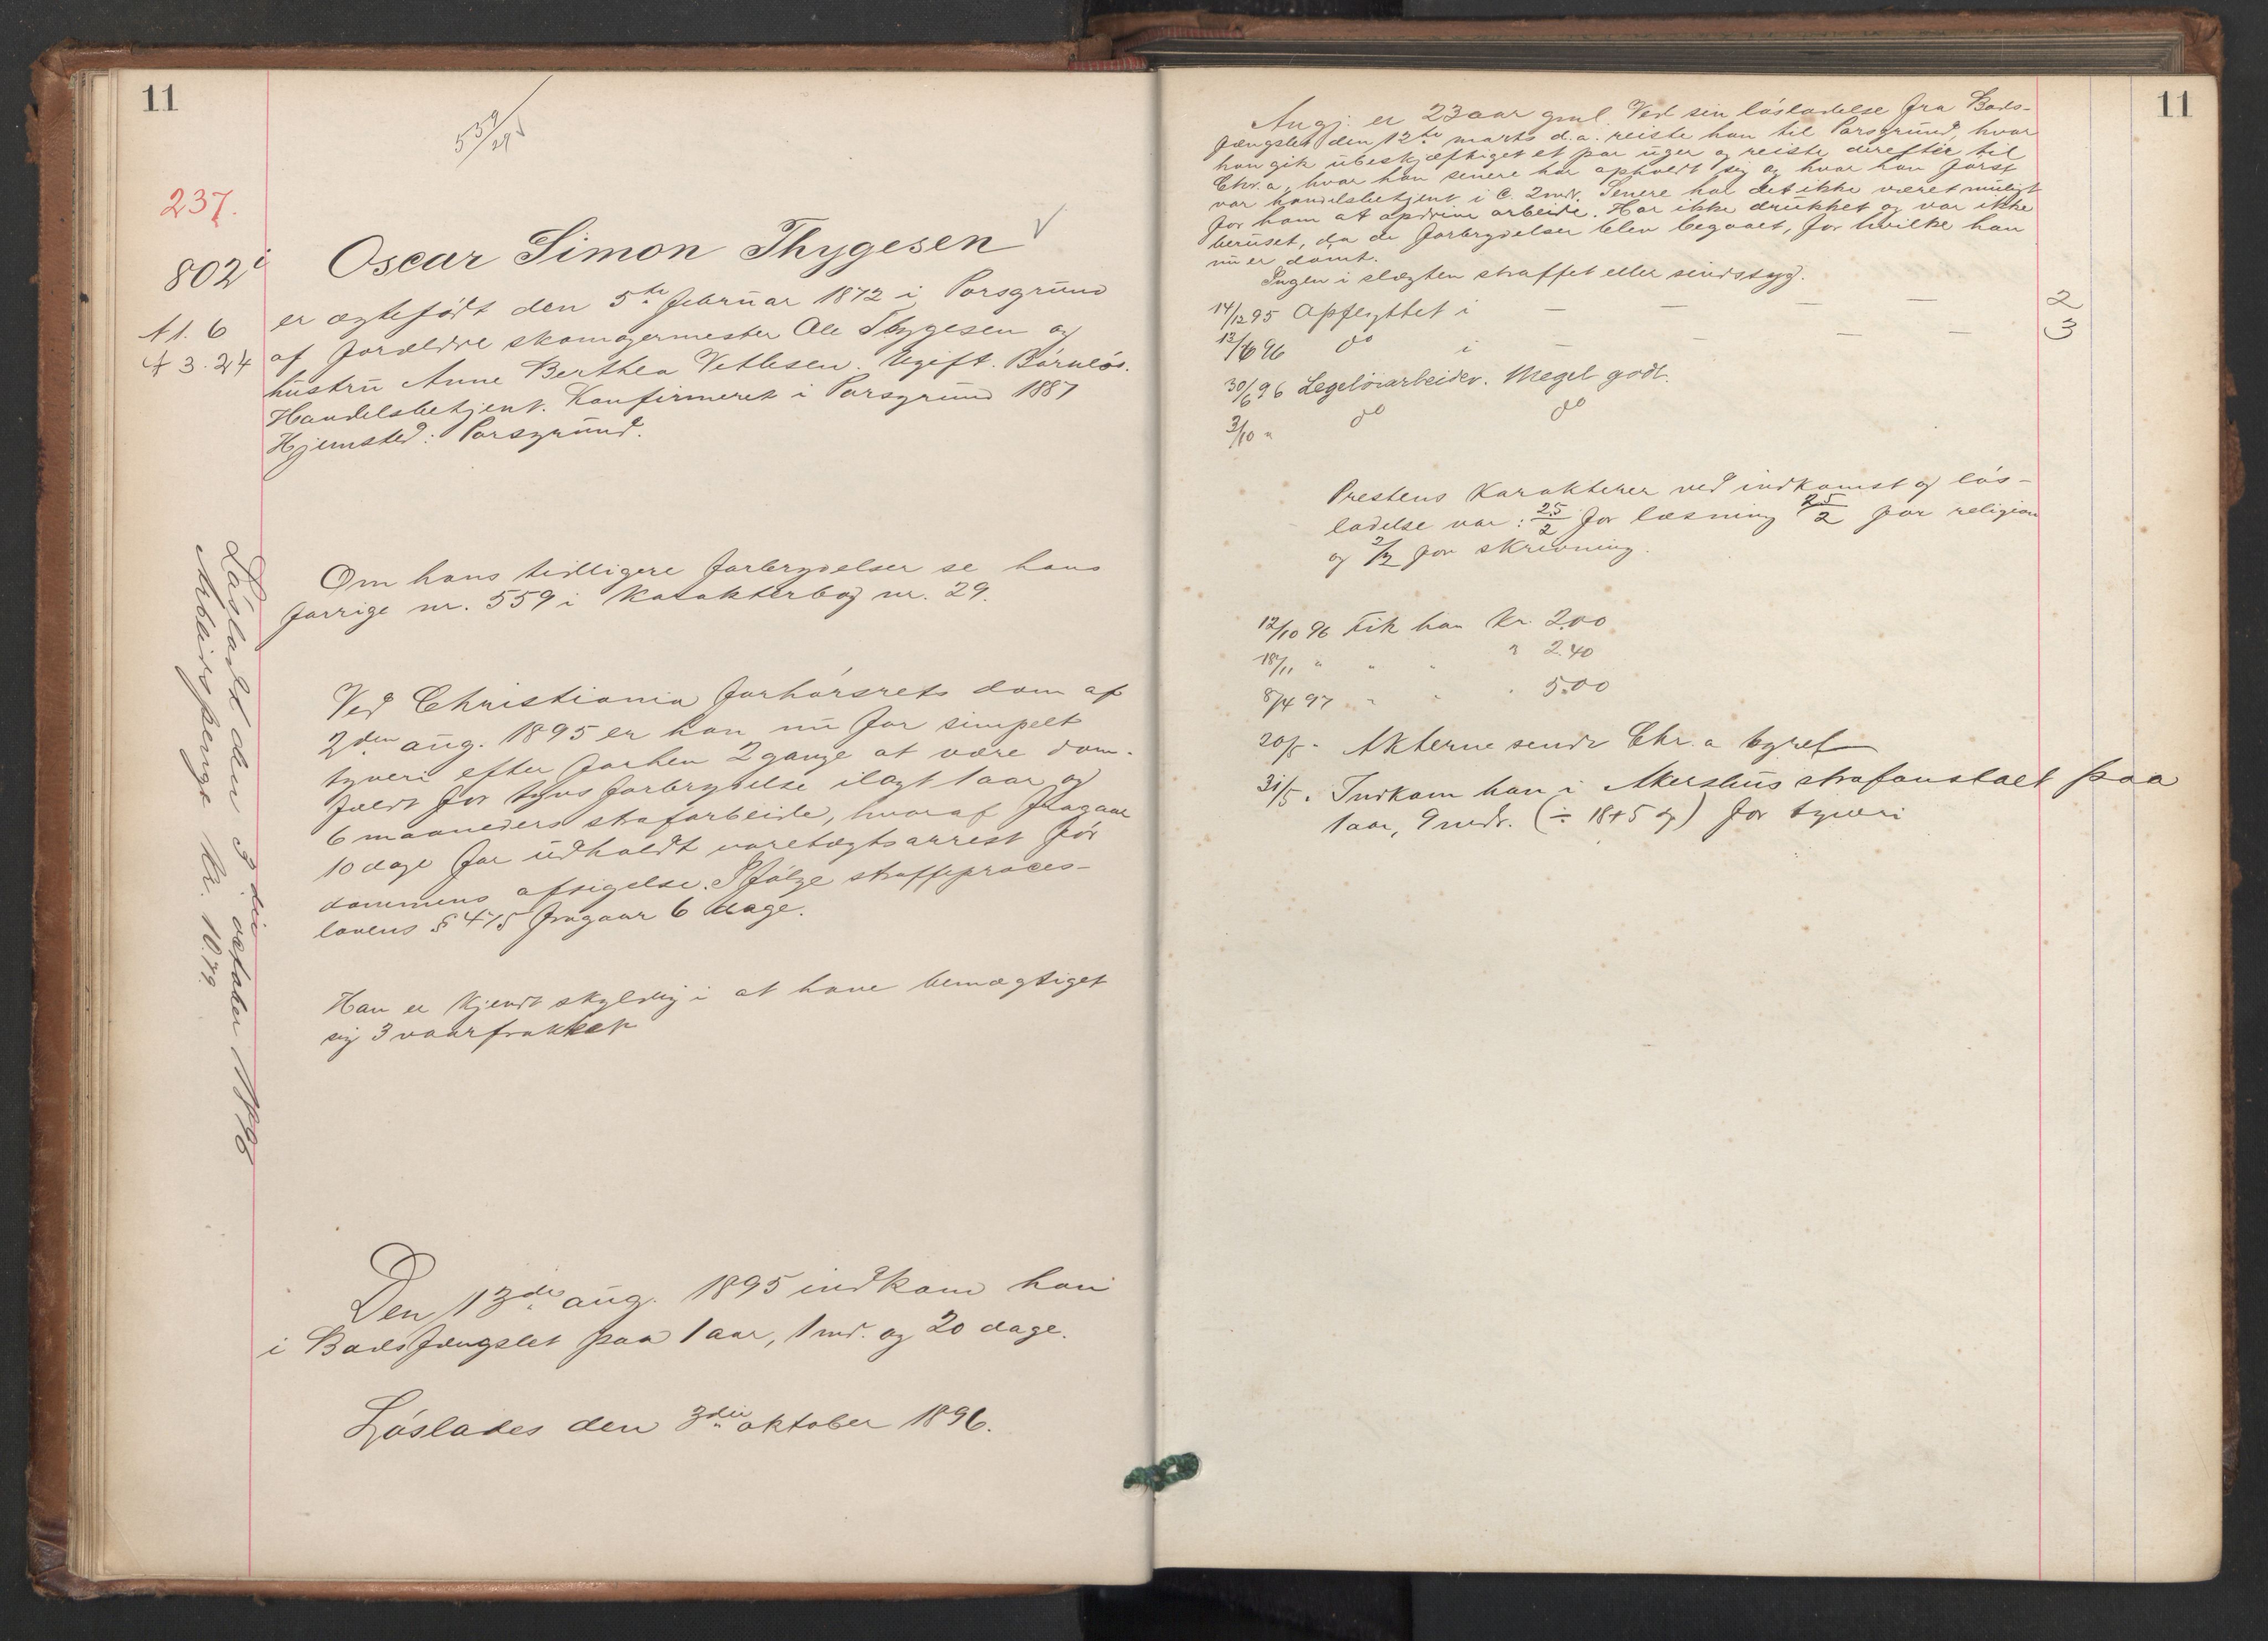 11
539/29
237.
Oscar Simon Thygesen
802
er ægtefødt den 5te februar 1872 i Porsgrund
A 1. 6
af forældre skomagermester Ole Thygesen og
A 3. 24
hustru Anne Berthea Vetlesen. Ugift. Barnløs.
Handelsbetjent. Konfirmeret i Porsgrund 1887
Hjemsted: Porsgrund.
Om hans tidligere forbrydelser se hans
forrige nr. 559 i karakterbog nr. 29.
Ved Christiania forhørsrets dom af
2den aug. 1895 er han nu for simpelt
tyveri efter forhen 2 gange at være dom-
fældt for tyvsforbrydelse ilagt 1 aar og
6 maaneders strafarbeide, hvoraf fragaar
10 dage for udholdt varetægtsarrest før
dommens afsigelse. Ifølge straffeproces-
lovens § 475 fragaar 6 dage.
Han er kjendt skyldig i at have bemægtiget
sig 3 vaarfrakker
Den 13de aug. 1895 indkom han
i Bodsfængslet paa 1 aar, 1 md. og 20 dage.
Løslades den 3die oktober 1896.
Løsladt den 3die oktober 1896
Arbeidspenge kr. 10.79.
11
Angj. er 23 aar gml. Ved sin løsladelse fra Bods-
fængslet den 12te marts d.a. reiste han til Porsgrund, hvor
han gik ubeskjæftiget et par uger og reiste derefter til
Chr.a, hvor han senere har opholdt sig og hvor han først
var handelsbetjent i C. 2 md. Senere har det ikke været muligt
for ham at opdrive arbeide. Har ikke drukket og var ikke
beruset, da de forbrydelser blev begaaet, for hvilke han
nu er dømt.
Ingen i slægten straffet eller sindssyg.
14/12 95 Opflyttet i — — — — 2
13/4 96 do i — — — — 3
30/6 96 Legetøiarbeider. Meget godt.
3/10 " do do
Prestens karakterer ved indkomst og løs-
ladelse var: 25/2 for læsning 25/2 for religion
og 2/2 for skrivning.
12/10 96 Fik han kr. 2.00
18/11 " " " " 2.40
8/4 97 " " " 5.00
20/5 - Akterne sendt Chr.a byret
31/5. Indkom han i Akershus strafanstalt paa
1 aar, 9 mdr. (÷ 18+5 dg) for tyveri